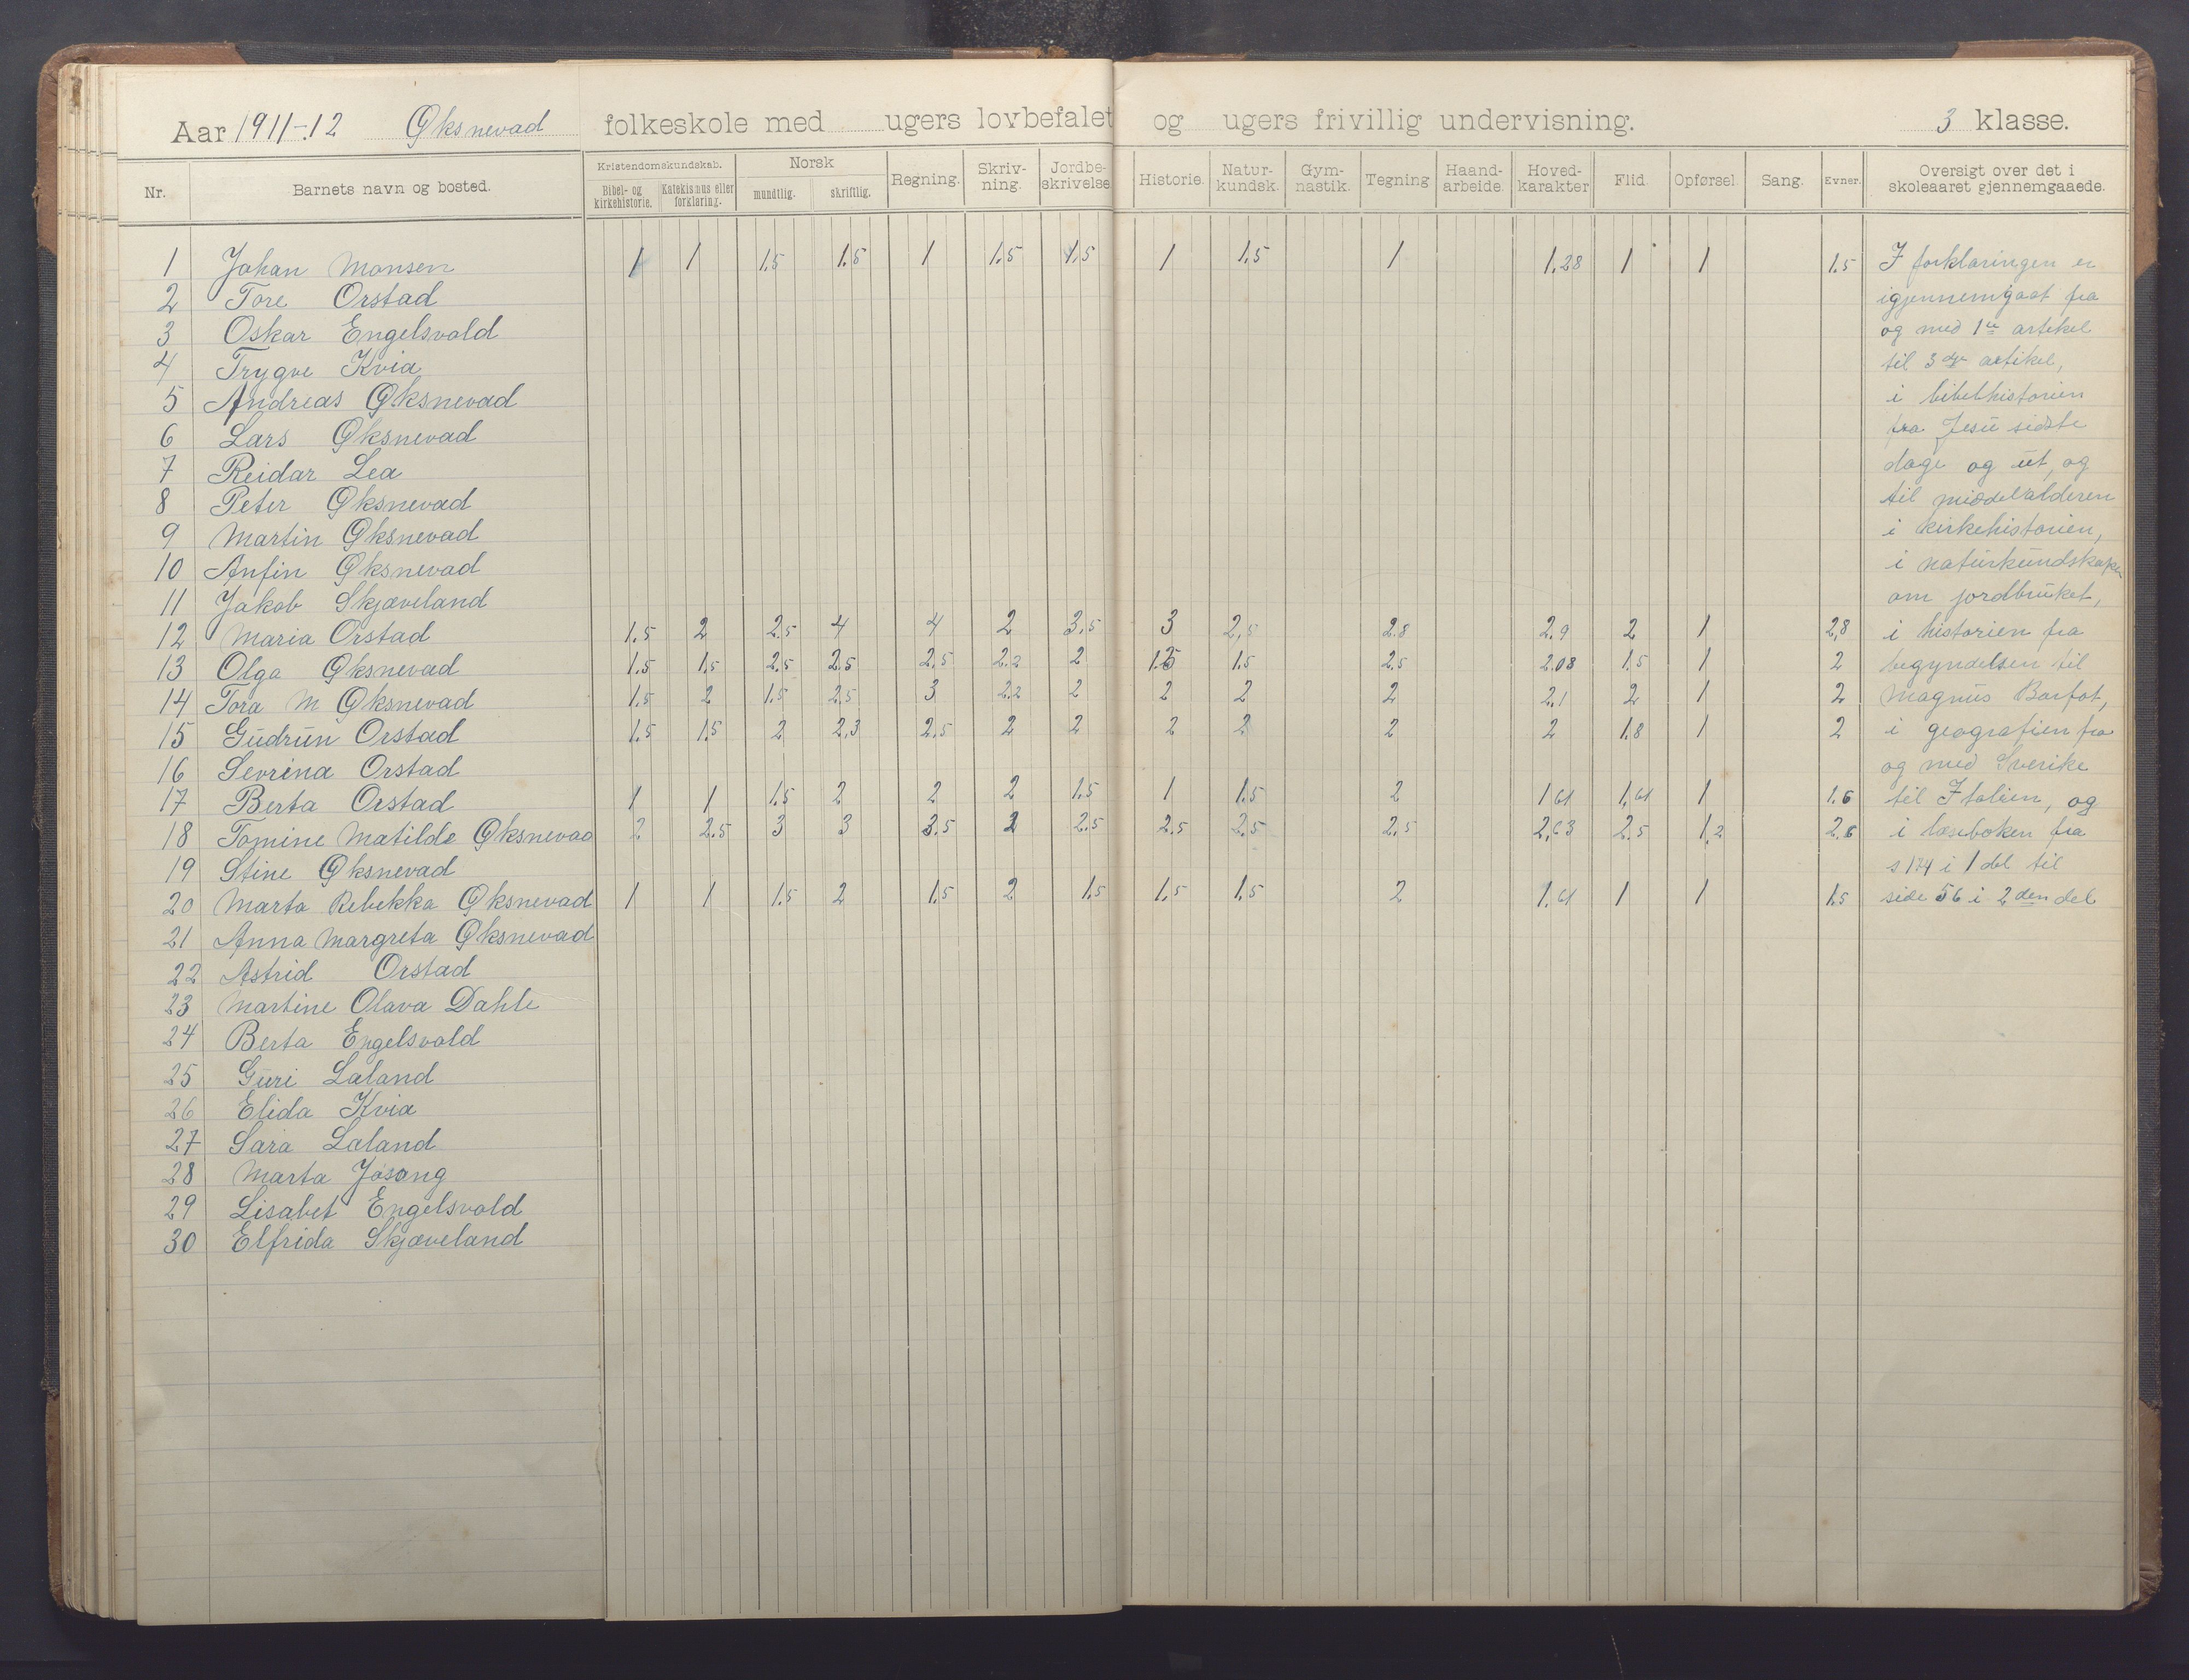 Aar 1911-12 Øksnevad folkeskole med ugers lovbefalet og ugers frivillig undervisning. 3 klasse.
Nr. Barnets navn og bosted. Kristendomskundskab. Bibel- og kirkehistorie. Katekismus eller forklaring. Norsk mundtlig. skriftlig. Regning. Skriv-ning. Jordbe-skrivelse Historie. Natur-kundsk. Gym-nastik. Tegning Haand-arbeide. Hoved-karakter Flid. Opførsel. Sang. Evner. Oversigt over det i skoleaaret gjennemgaaede.
1 Johan Monsen 1 1 1.5 1.5 1 1.5 1.5 1 1.5 1 1.28 1 1 1.5 I forklaringen er
2 Tore Orstad igjennemgaat fra
3 Oskar Engelsvold og med 1ste artikel
4 Trygve Kvia til 3die artikel,
5 Andreas Øksnevad i bibelhistorien
6 Lars Øksnevad fra Jesu sidste
7 Reidar Lea dage og ut, og
8 Peter Øksnevad til middelalderen
9 Martin Øksnevad i kirkehistorien,
10 Anfin Øksnevad i naturkundskapen
11 Jakob Skjæveland om jordbruket,
12 Maria Orstad 1.5 2 2.5 4 4 2 3.5 3 2,5 2.8 2.9 2 1 2,8 i historien fra
13 Olga Øksnevad 1.5 1.5 2.5 2.5 2.5 2.2 2 1.5 1.5 2.5 2.08 1.5 1 2 begyndelsen til
14 Tora M Øksnevad 1.5 2 1.5 2.5 3 2.2 2 2 2 2 2.1 2 1 2 Magnus Barfot,
15 Gudrun Orstad 1.5 1.5 2 2.3 2.5 2 2 2 2 2 2 1.8 1 2 i geografien fra
16 Sevrina Orstad og med Sverike
17 Berta Orstad 1 1 1.5 2 2 2 1.5 1 1.5 2 1.61 1.61 1 1.6 til Italien, og
18 Tomine Matilde Øksnevad 2 2.5 3 3 3.5 2 2.5 2.5 2.5 2.5 2.63 2.5 1.2 2.6 i læseboken fra
19 Stine Øksnevad s 174 i 1 del til
20 Marta Rebekka Øksnevad 1 1 1.5 2 1.5 2 1.5 1.5 1.5 2 1.61 1 1 1.5 side 56 i 2den del
21 Anna Margreta Øksnevad
22 Astrid Orstad
23 Martine Olava Dahle
24 Berta Engelsvold
25 Guri Laland
26 Elida Kvia
27 Sara Laland
28 Marta Jøsang
29 Lisabet Engelsvold
30 Elfrida Skjæveland